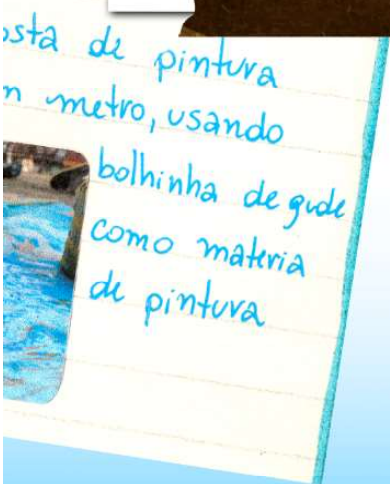 osta de pintura
n metro, usando
bolhinha de gude
como materia
de pintura